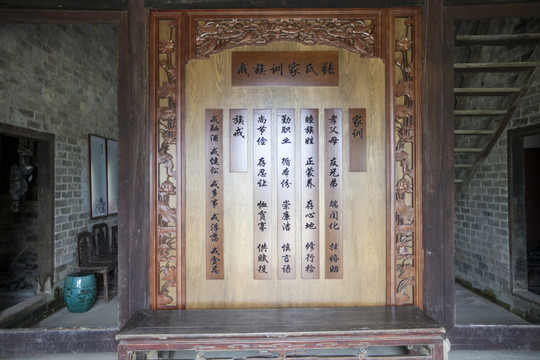 张氏家训族戒
家训
孝父母 友兄弟 端闺化 择婚姻
睦族姓 正蒙养 存心地 修行检
勤职业 循本份 崇廉洁 慎言语
尚节俭 存忍让 恤贫寡 供赋役
族戒
戒酗酒 戒健讼 戒多事 戒浮荡 戒贪